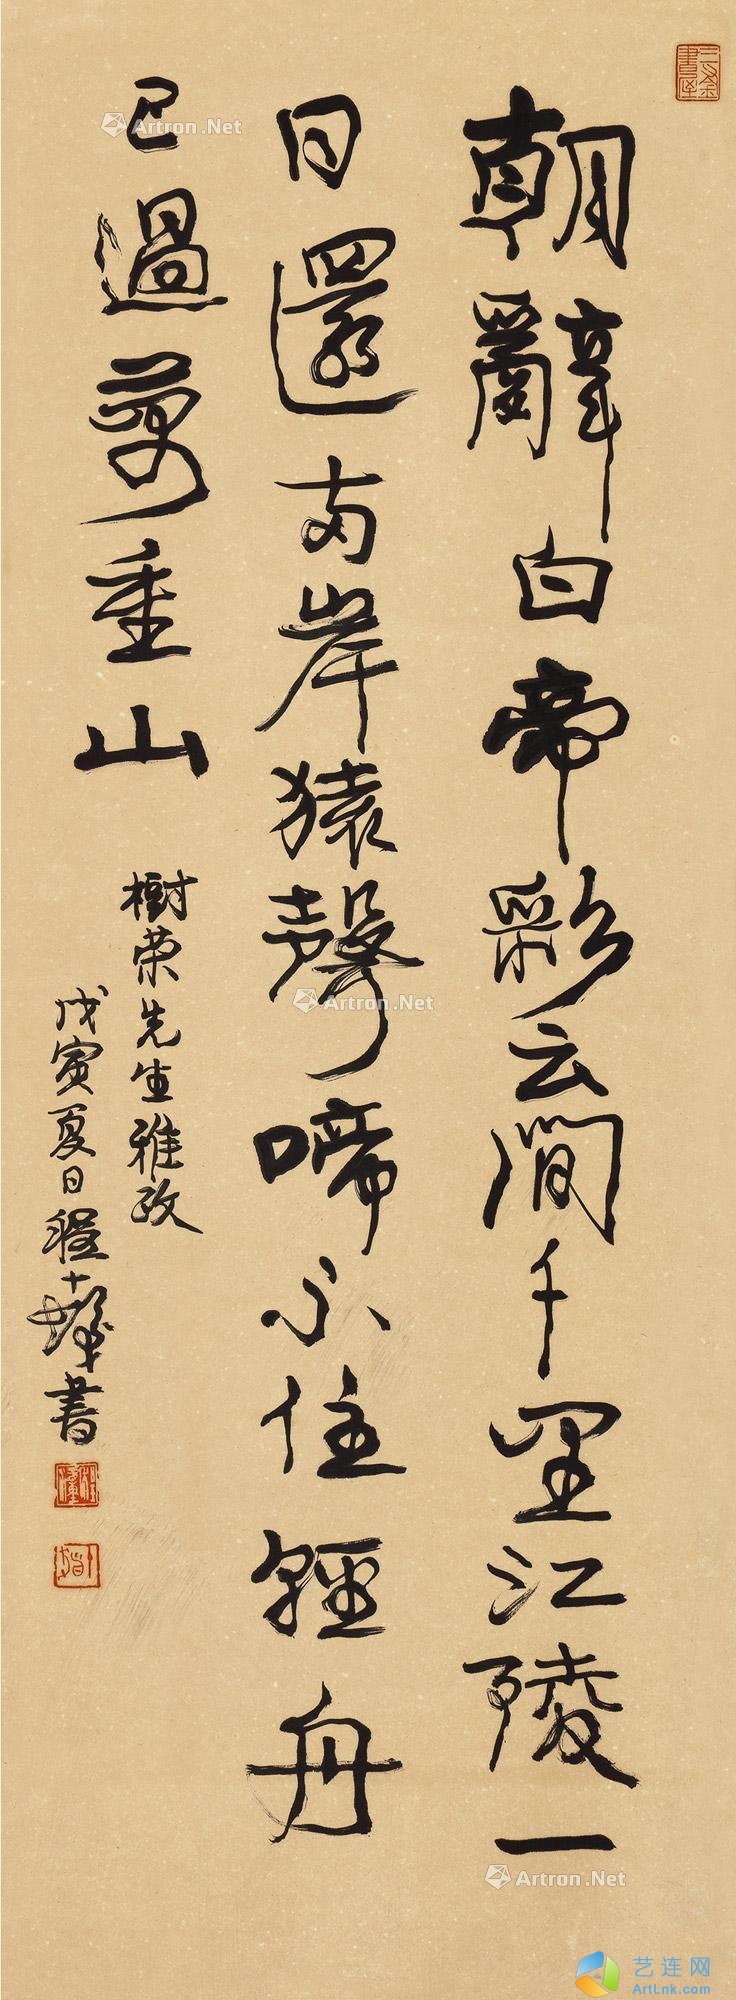 朝辭白帝彩云間千里江陵一
日還两岸猿聲啼不住輕舟
已過萬重山
樹荣先生雅政
戊寅夏日程十髮書
Artron.Net
Artron.Net
Artron.Net
艺连网
ArtLnk.com